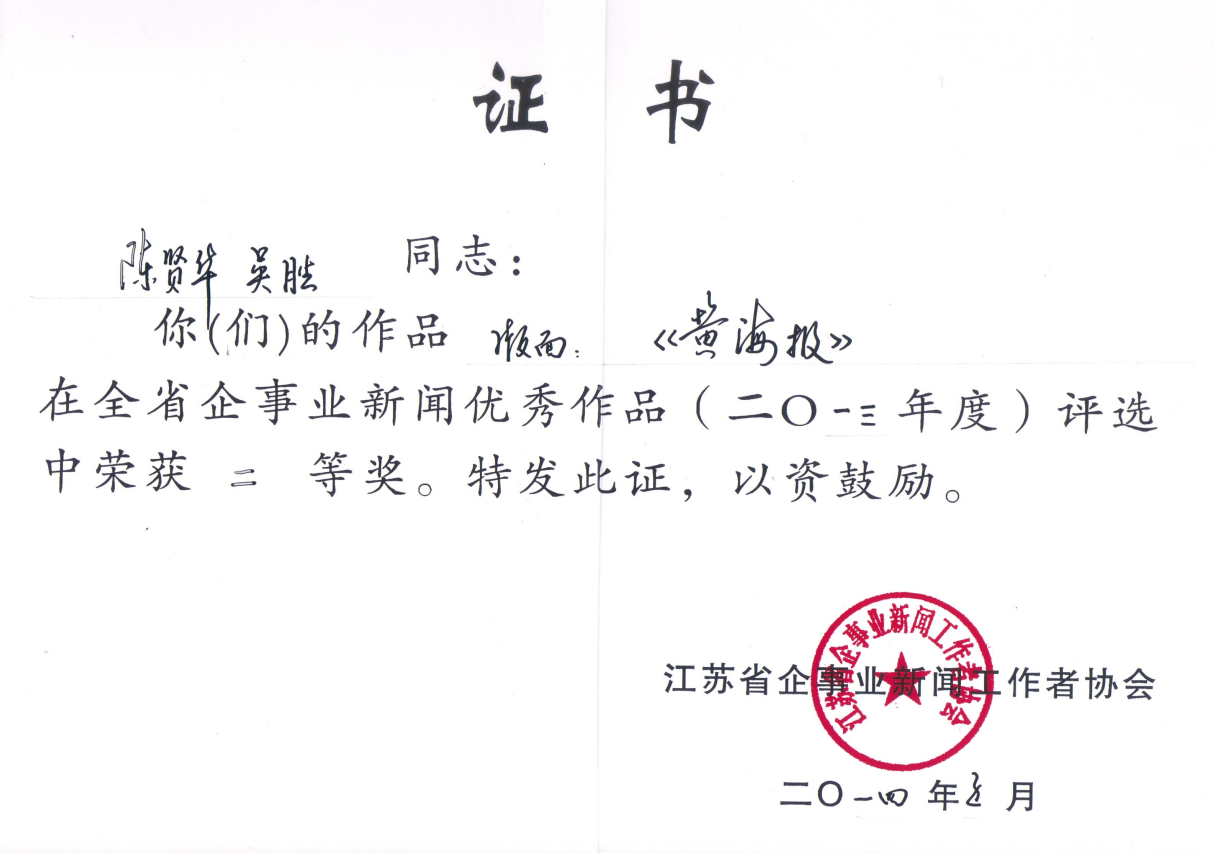 证 书
陈贤华 吴胜 同志：
你(们)的作品 版面：《黄海报》
在全省企事业新闻优秀作品（二〇一三年度）评选
中荣获 二 等奖。特发此证，以资鼓励。
江苏省企事业新闻工作者协会
江苏省企事业新闻工作者协会
二〇一四年 月